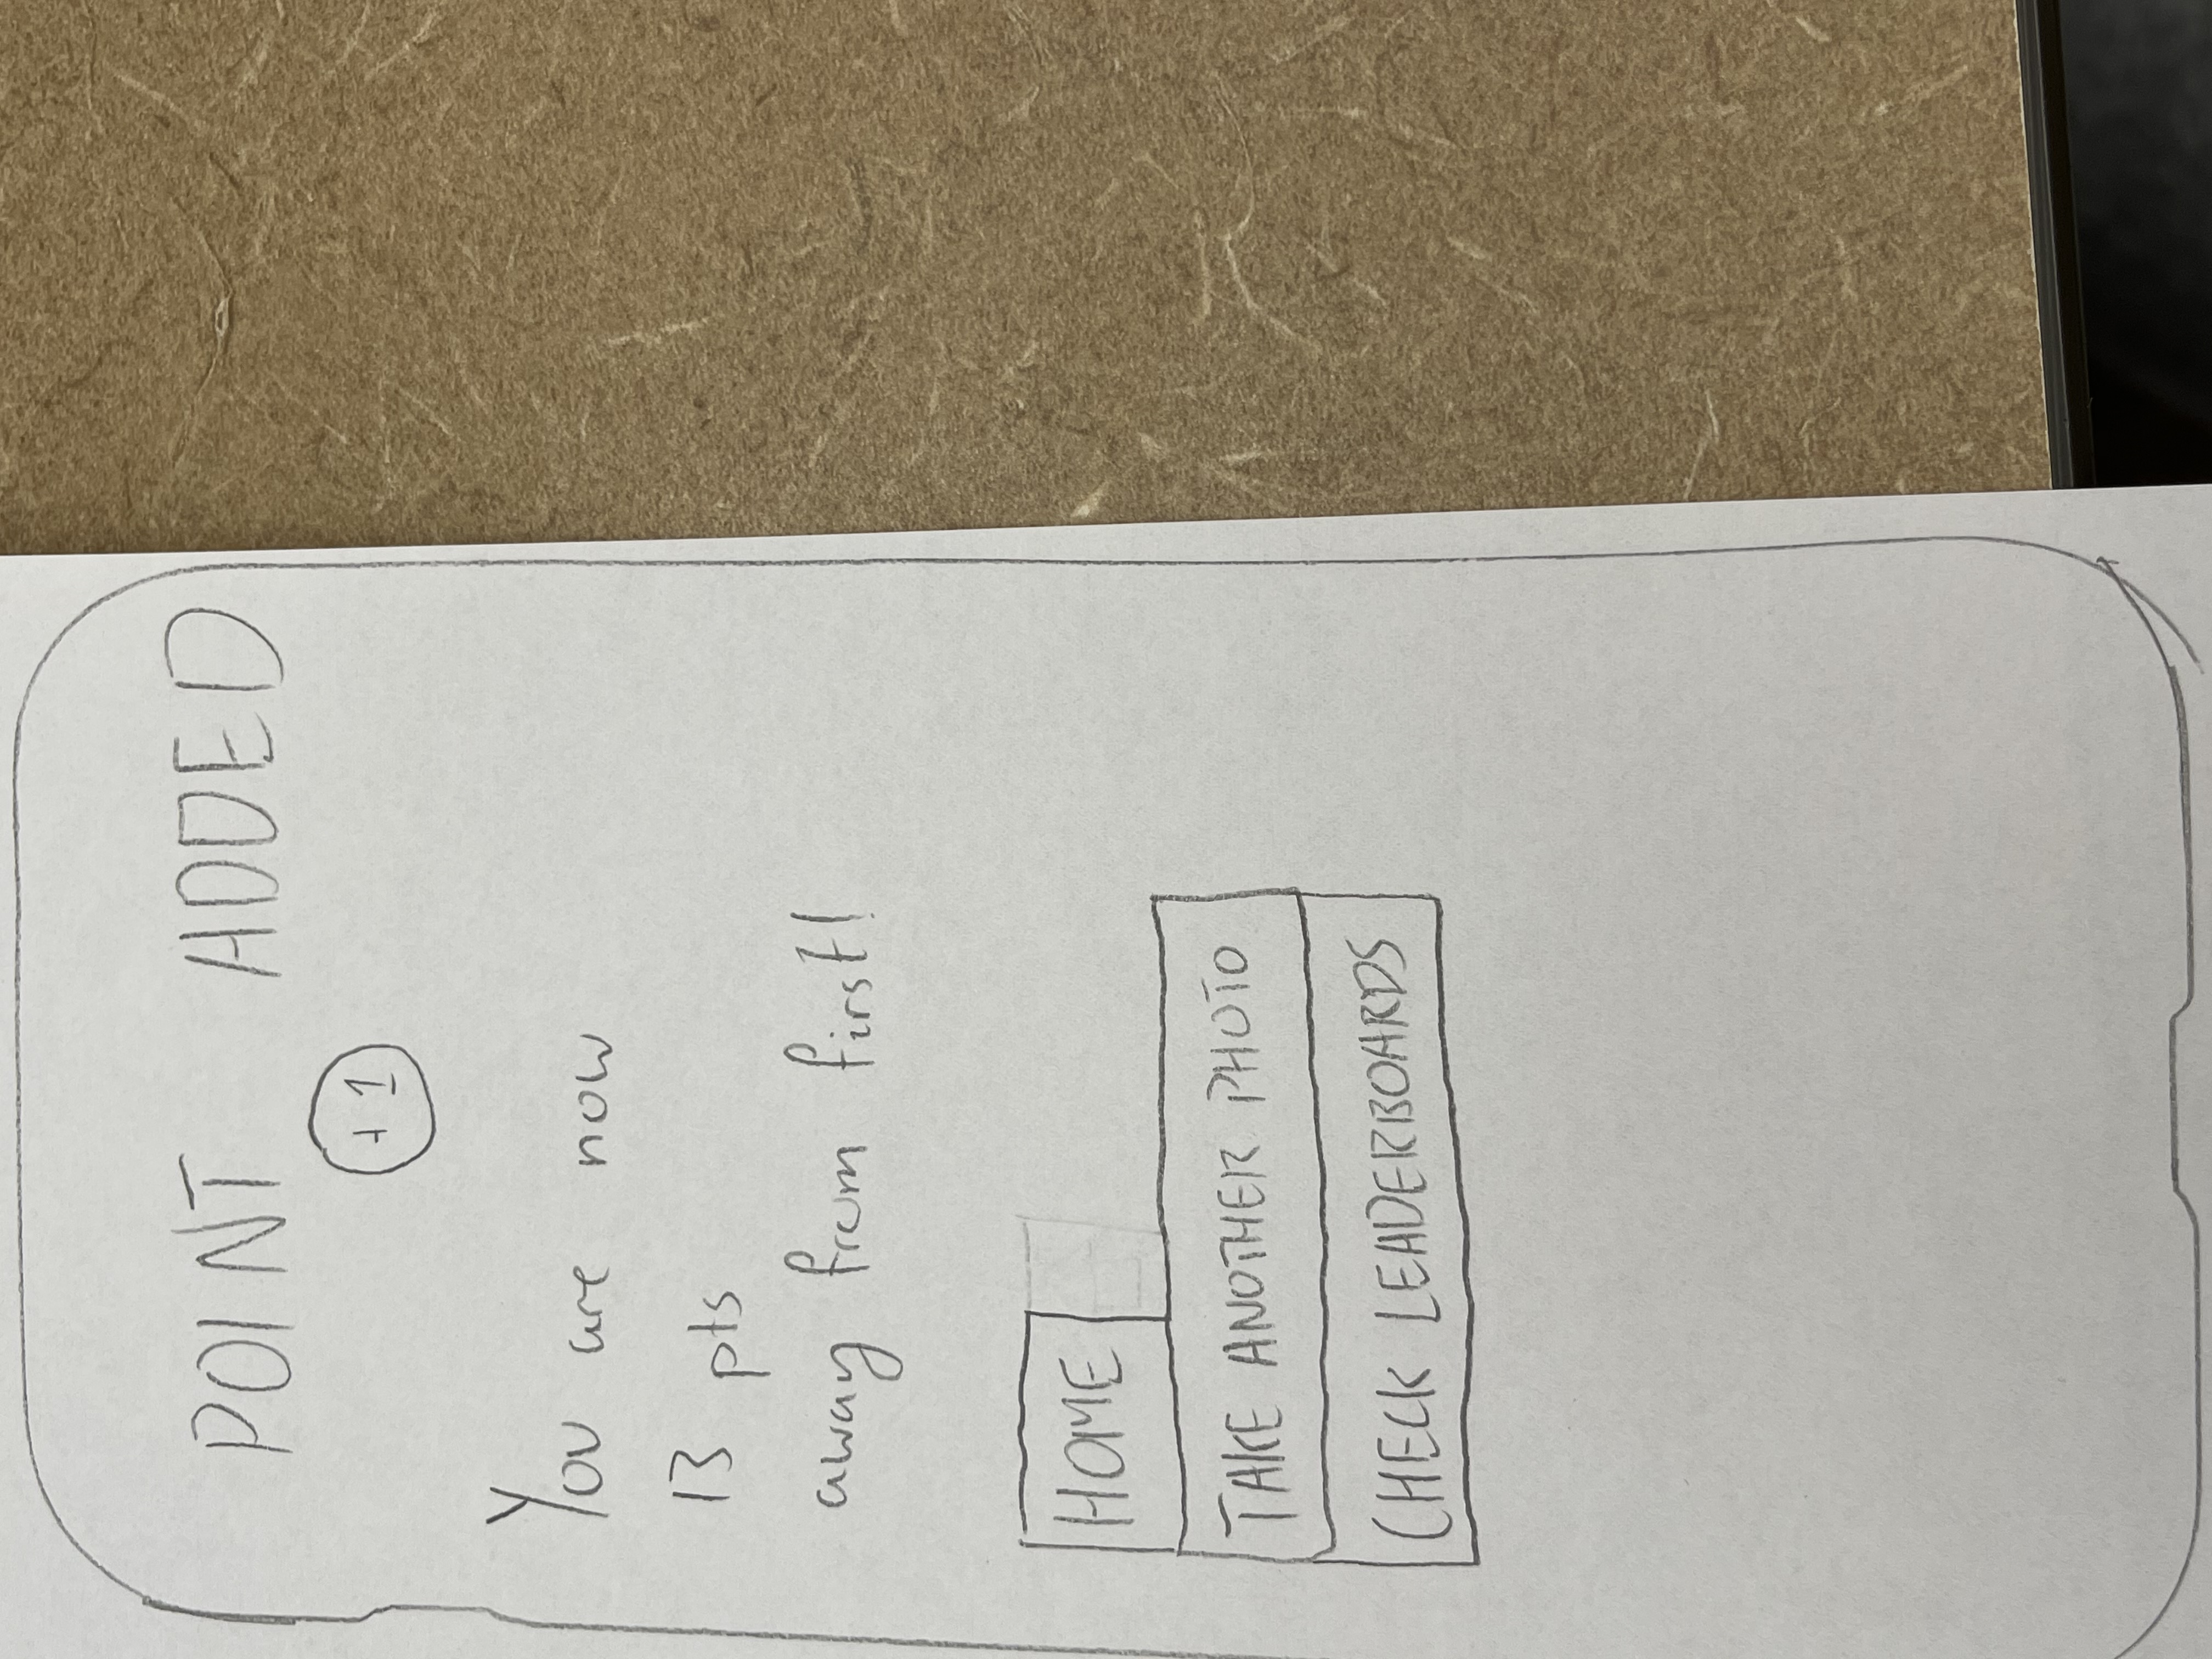 POINT ADDED
+1
You are now
13 pts
away from first!
HOME
TAKE ANOTHER PHOTO
CHECK LEADERBOARDS